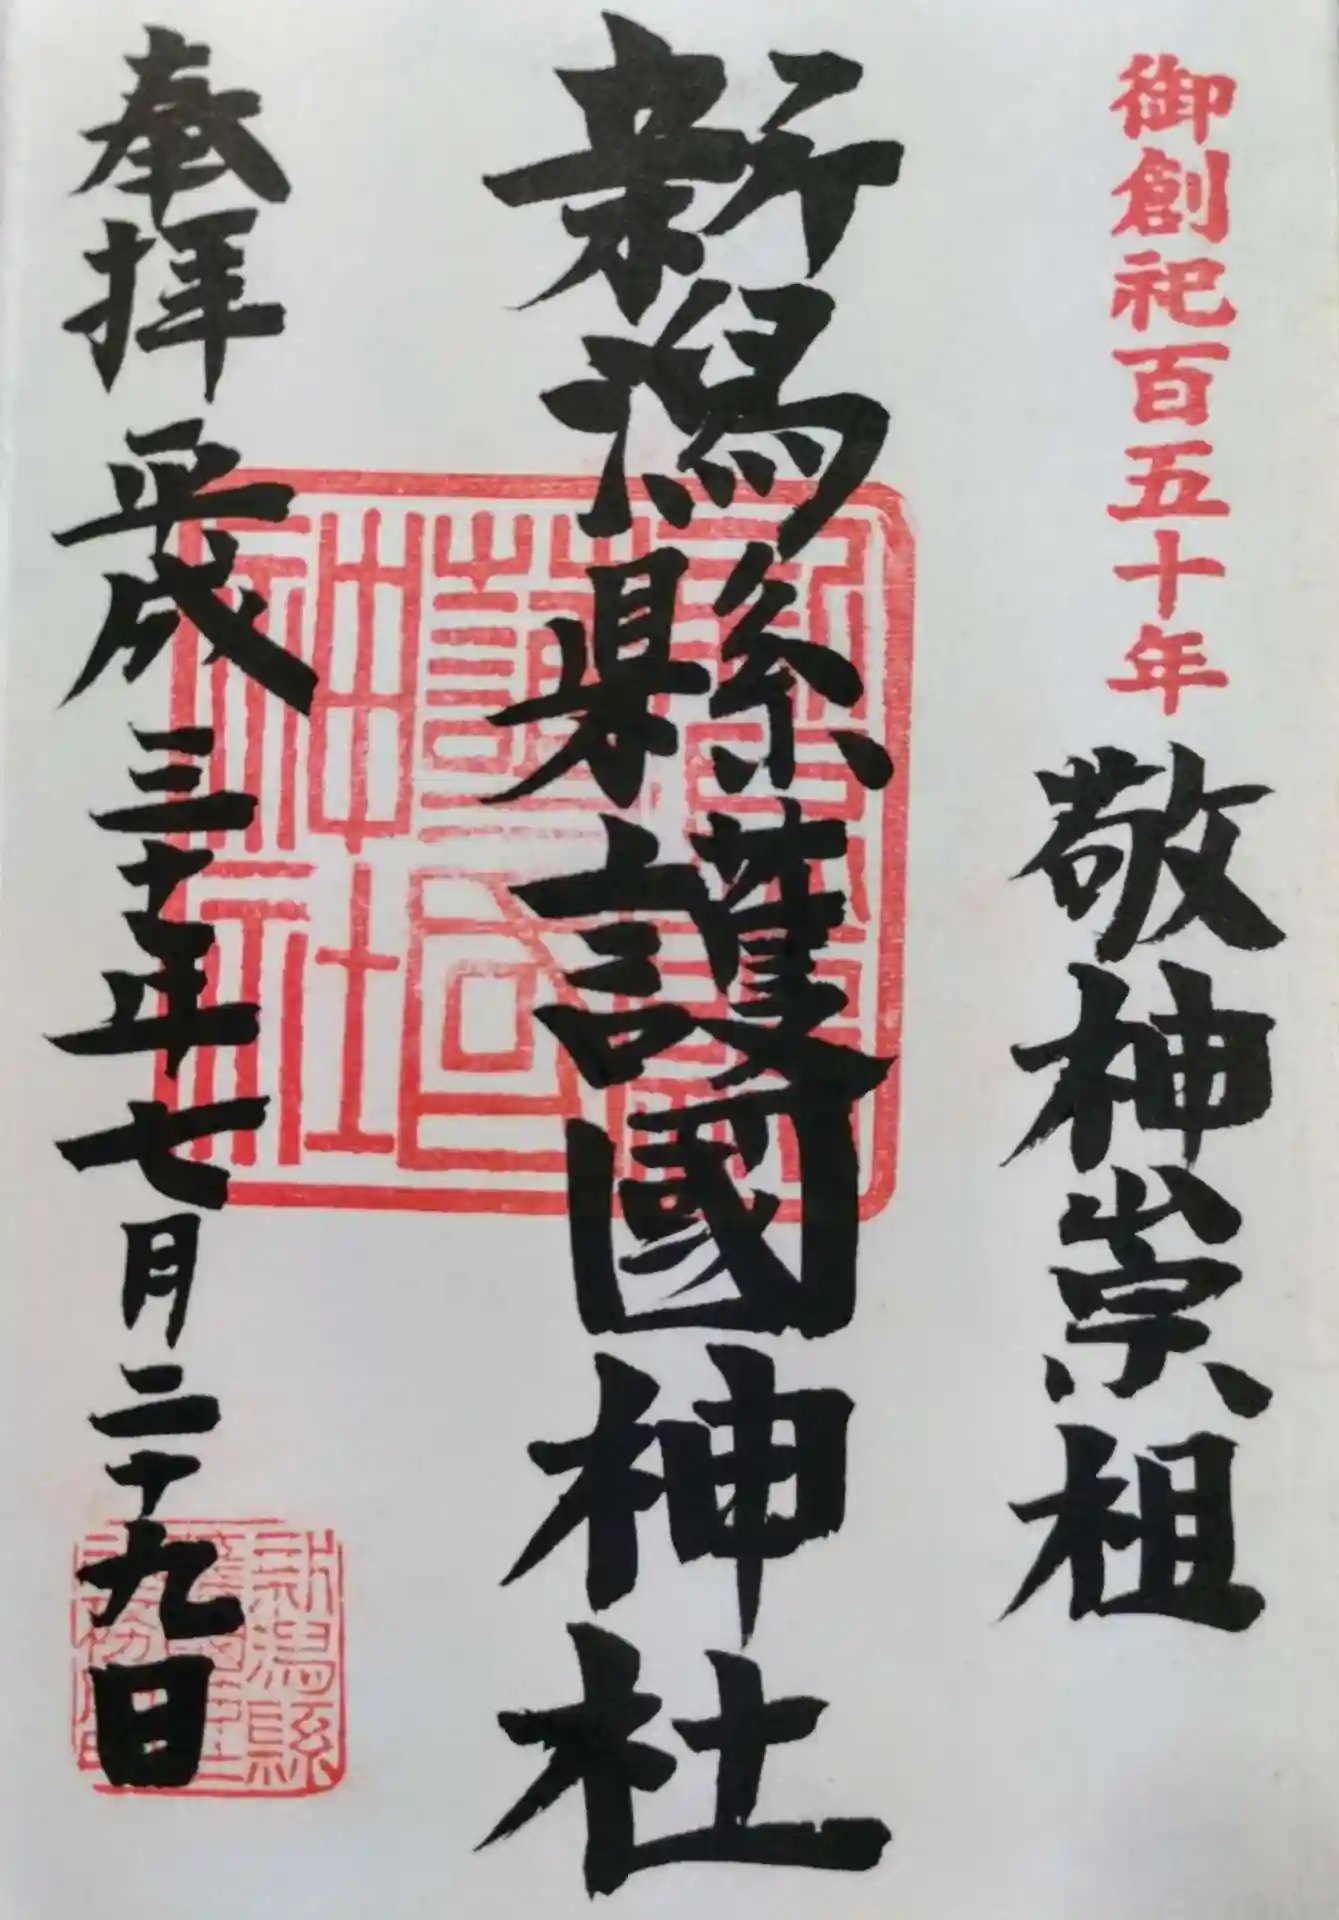 御創祀百五十年
敬神崇祖
新潟縣護國神社
奉拝 平成三十年七月二十九日
新潟縣護國神社
新潟縣